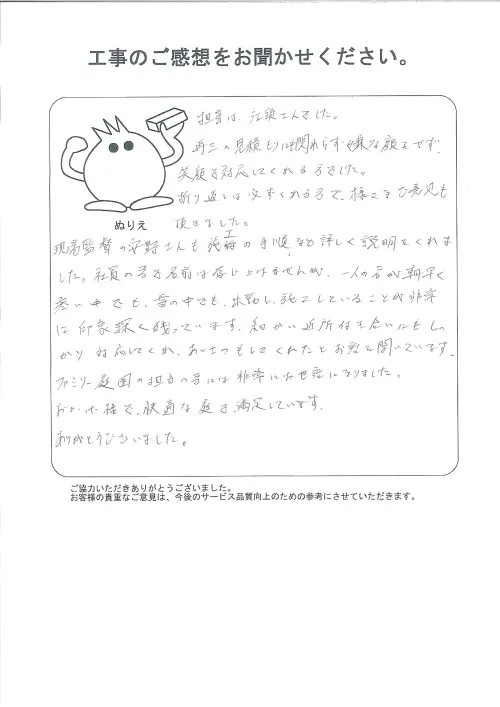 工事のご感想をお聞かせください。
担当は、江頭さんでした。
再三の見積もりにも関わらず嫌な顔をせず、
笑顔で対応してくれる方でした。
折り返しは必ずくれる方で、様々なご意見も
頂きました。
ぬりえ
現場監督の安野さんも施工の手順など詳しく説明をくれま
した。社員の方で名前は存じ上げませんが、一人の方が朝早く
寒い中でも、雪の中でも、出勤し、施工していることが非常
に印象深く残っています。細かい近所付き合いにもしっ
かり対応してくれ、あいさつもしてくれたとお話を聞いています。
ファミリー庭園の担当の方には非常にお世話になりました。
おかげ様で、快適な庭で満足しています。
ありがとうございました。
ご協力いただきありがとうございました。
お客様の貴重なご意見は、今後のサービス品質向上のための参考にさせていただきます。